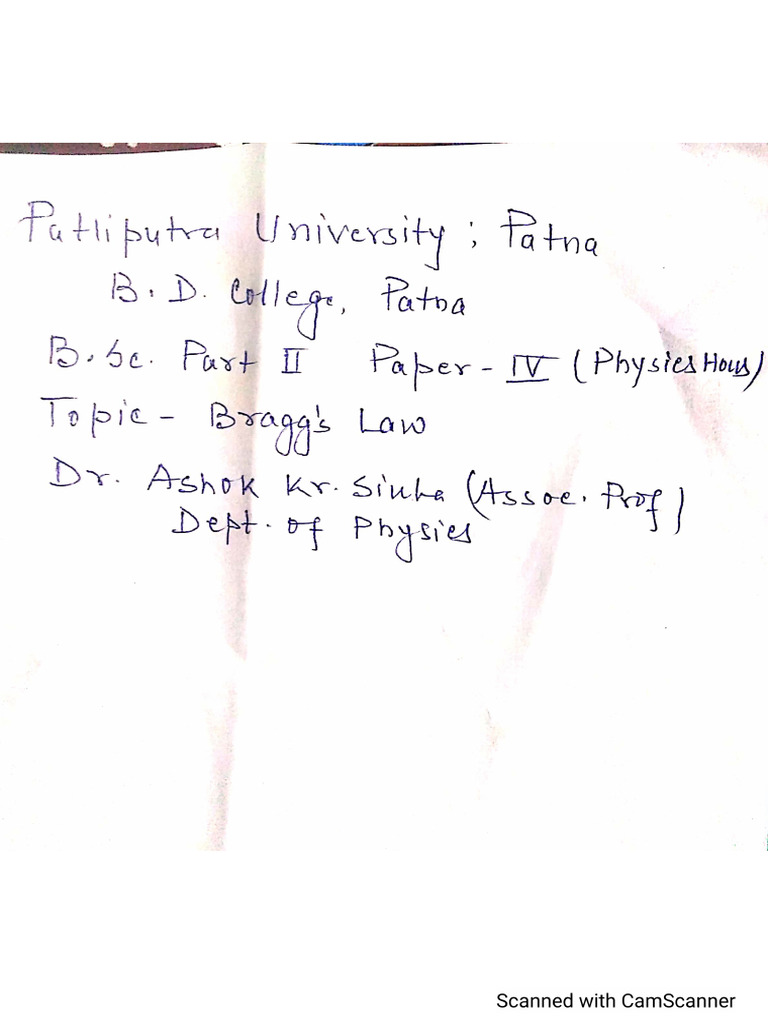 Patliputra University ; Patna
B. D. College, Patna
B.Sc. Part II Paper - IV (Physics Hons)
Topic - Bragg's Law
Dr. Ashok Kr. Sinha (Assoc. Prof)
Dept. of Physics
Scanned with CamScanner